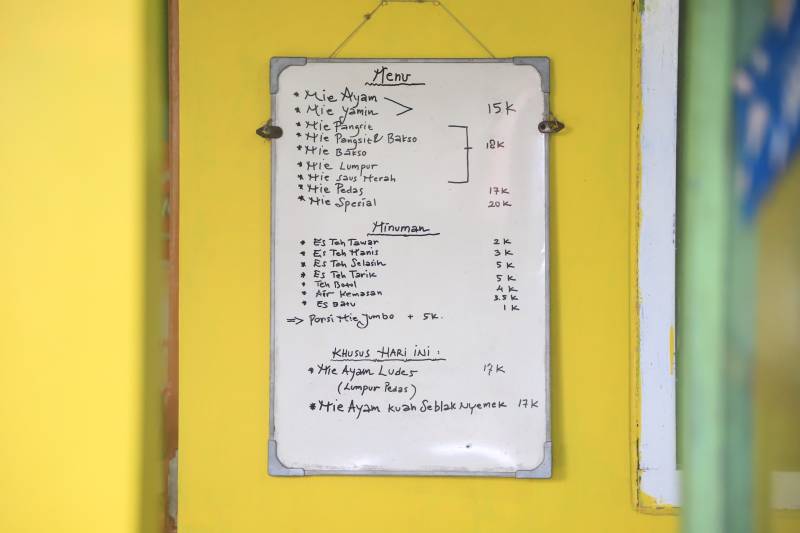 Menu
* Mie Ayam
* Mie Yamin 15 K
* Mie Pangsit
* Mie Pangsit & Bakso
* Mie Bakso 18K
* Mie Lumpur
* Mie Saus Merah
* Mie Pedas 17K
* Mie Spesial 20K
Minuman
* Es Teh Tawar 2 K
* Es Teh Manis 3 K
* Es Teh Selasih 5 K
* Es Teh Tarik 5 K
* Teh Botol 4 K
* Air Kemasan 3.5 K
* Es Batu 1 K
=> Porsi Mie Jumbo + 5K.
KHUSUS HARI INI :
* Mie Ayam Ludes 17K
(Lumpur Pedas)
* Mie Ayam Kuah Seblak Nyemek 17K